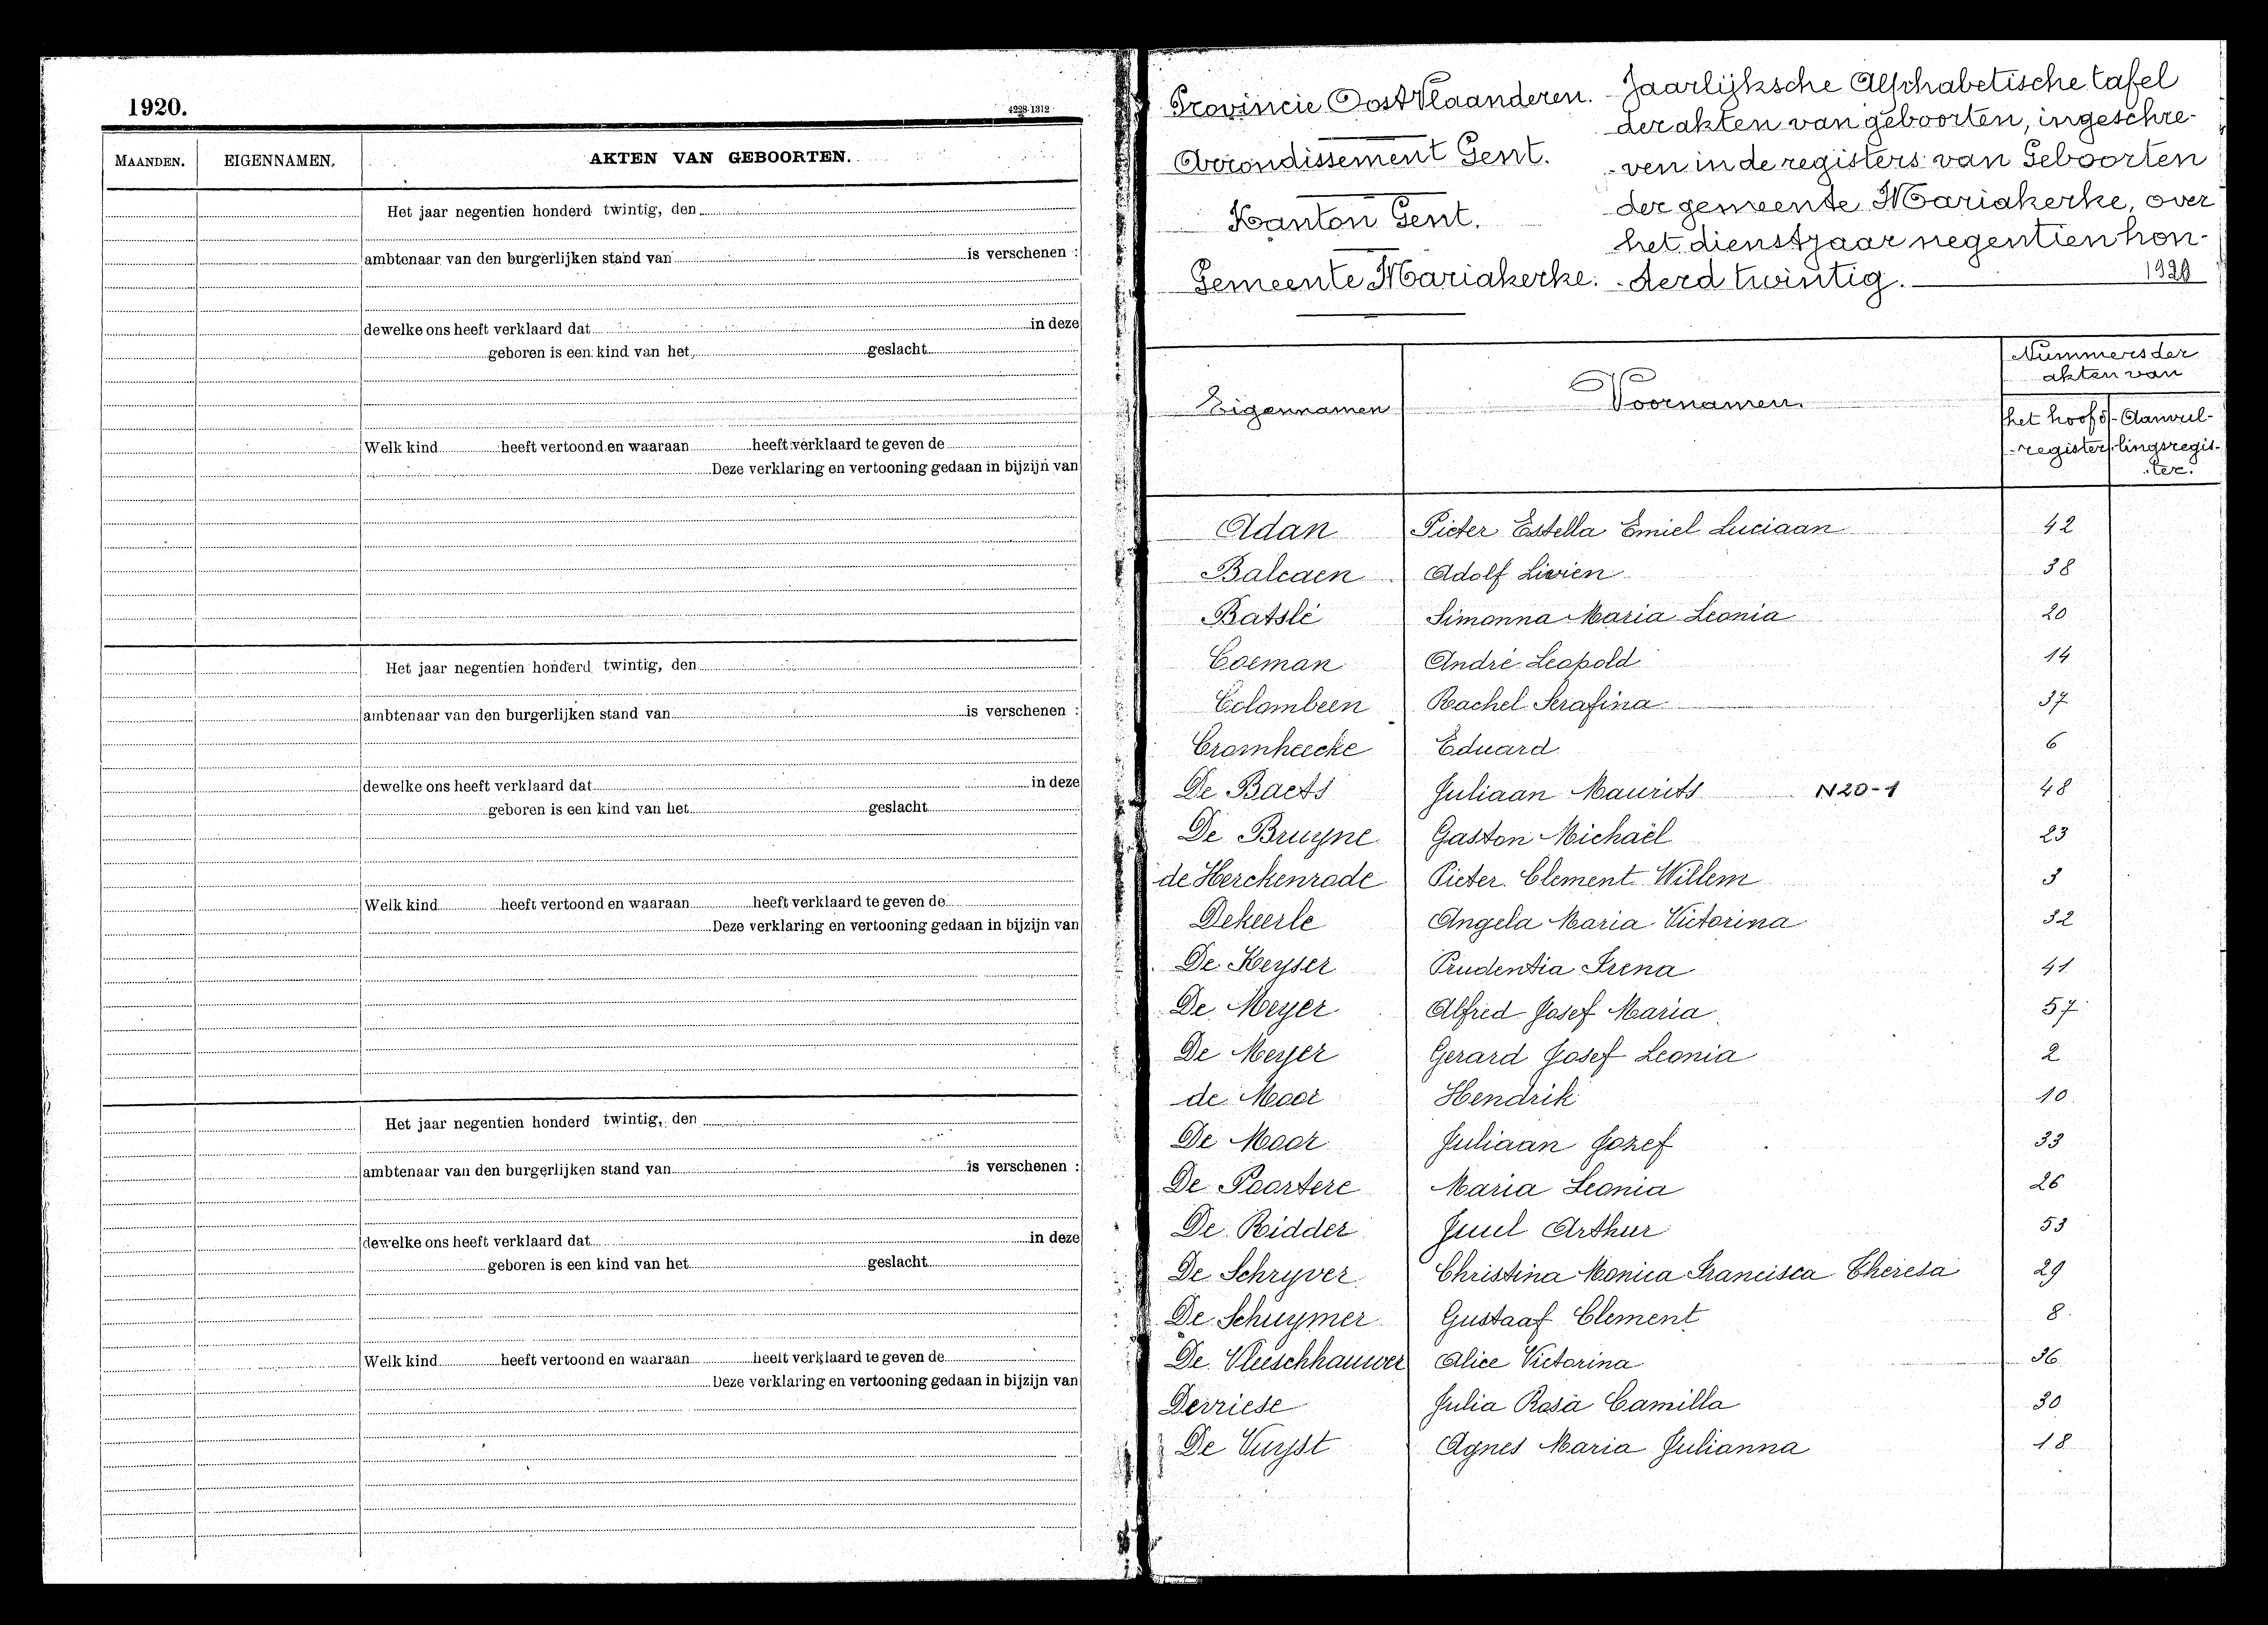 1920.
4228-1312
MAANDEN.
EIGENNAMEN.
AKTEN VAN GEBOORTEN.
Het jaar negentien honderd twintig, den
ambtenaar van den burgerlijken stand van is verschenen :
dewelke ons heeft verklaard dat in deze
geboren is een kind van het geslacht
Welk kind heeft vertoond en waaraan heeft verklaard te geven de
Deze verklaring en vertooning gedaan in bijzijn van
Het jaar negentien honderd twintig, den
ambtenaar van den burgerlijken stand van is verschenen :
dewelke ons heeft verklaard dat in deze
geboren is een kind van het geslacht
Welk kind heeft vertoond en waaraan heeft verklaard te geven de
Deze verklaring en vertooning gedaan in bijzijn van
Het jaar negentien honderd twintig, den
ambtenaar van den burgerlijken stand van is verschenen :
dewelke ons heeft verklaard dat in deze
geboren is een kind van het geslacht
Welk kind heeft vertoond en waaraan heeft verklaard te geven de
Deze verklaring en vertooning gedaan in bijzijn van
Provincie Oost Vlaanderen.
Arrondissement Gent.
Kanton Gent.
Gemeente Mariakerke.
Jaarlijksche Alphabetische tafel
der akten van geboorten, ingeschre-
ven in de registers van Geboorten
der gemeente Mariakerke, over
het dienstjaar negentien hon-
derd twintig. 1920
Eigennamen
Voornamen.
Nummers der
akten van
het hoofd-
register
Aanvul-
lingsregis-
ter.
Adan Pieter Estella Emiel Luciaan 42
Balcaen Adolf Livien 38
Batslé Simonna Maria Leonia 20
Coeman André Leopold 14
Colombeen Rachel Serafina 37
Cromheecke Eduard 6
De Baets Juliaan Maurits N20-1 48
De Bruyne Gaston Michaël 23
de Herckenrode Pieter Clement Willem 3
Dekeerle Angela Maria Victorina 32
De Keyser Prudentia Irena 41
De Meyer Alfred Josef Maria 57
De Meyer Gerard Josef Leonia 2
de Moor Hendrik 10
De Moor Juliaan Jozef 33
De Poortere Maria Leonia 26
De Ridder Juul Arthur 53
De Schryver Christina Monica Francisca Theresa 29
De Schuymer Gustaaf Clement 8
De Vleeschhauwer Alice Victorina 36
Devriese Julia Rosa Camilla 30
De Vuyst Agnes Maria Julianna 18